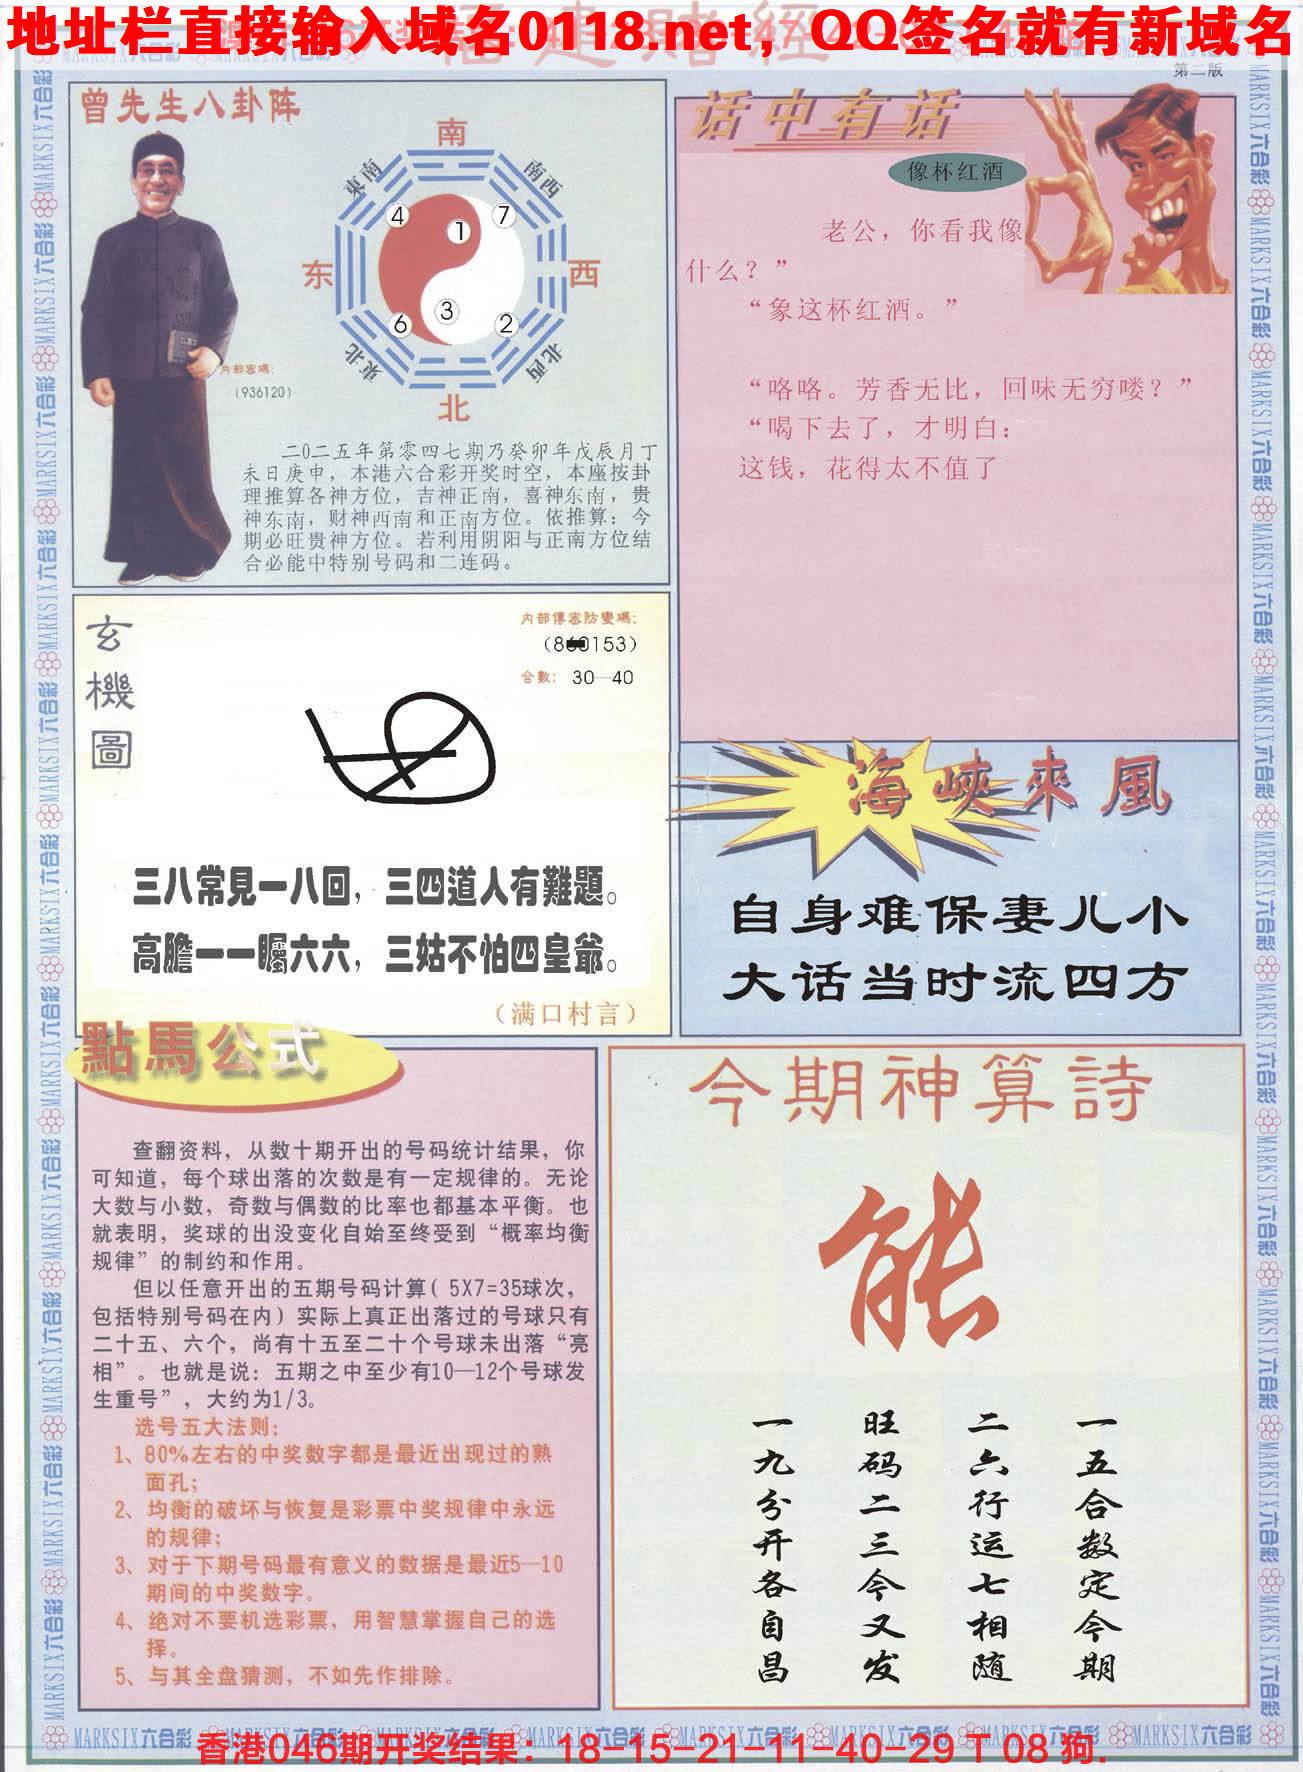 地址栏直接输入域名0118.net，QQ签名就有新域名
第二版
曾先生八卦阵
南
東南
南西
4
7
1
东
西
3
6
2
東北
北西
北
内部密碼：
（936120）
二0二五年第零四七期乃癸卯年戊辰月丁
未日庚申，本港六合彩开奖时空，本座按卦
理推算各神方位，吉神正南，喜神东南，贵
神东南，财神西南和正南方位。依推算：今
期必旺贵神方位。若利用阴阳与正南方位结
合必能中特别号码和二连码。
话中有话
像杯红酒
老公，你看我像
什么？”
“象这杯红酒。”
“咯咯。芳香无比，回味无穷喽？”
“喝下去了，才明白：
这钱，花得太不值了
玄機圖
内部傳密防變碼：
合數： 30—40
三八常見一八回，三四道人有難題。
高膽一一矚六六，三姑不怕四皇爺。
（满口村言）
海峽來風
自身难保妻儿小
大话当时流四方
點馬公式
查翻资料，从数十期开出的号码统计结果，你
可知道，每个球出落的次数是有一定规律的。无论
大数与小数，奇数与偶数的比率也都基本平衡。也
就表明，奖球的出没变化自始至终受到“概率均衡
规律”的制约和作用。
但以任意开出的五期号码计算（5X7=35球次，
包括特别号码在内）实际上真正出落过的号球只有
二十五、六个，尚有十五至二十个号球未出落“亮
相”。也就是说：五期之中至少有10—12个号球发
生重号”，大约为1/3。
选号五大法则：
1、80%左右的中奖数字都是最近出现过的熟
面孔；
2、均衡的破坏与恢复是彩票中奖规律中永远
的规律；
3、对于下期号码最有意义的数据是最近5—10
期间的中奖数字。
4、绝对不要机选彩票，用智慧掌握自己的选
择。
5、与其全盘猜测，不如先作排除。
今期神算詩
能
一五合数定今期
二六行运七相随
旺码二三今又发
一九分开各自昌
MARKSIX六合彩
香港046期开奖结果：18-15-21-11-40-29 T 08 狗.